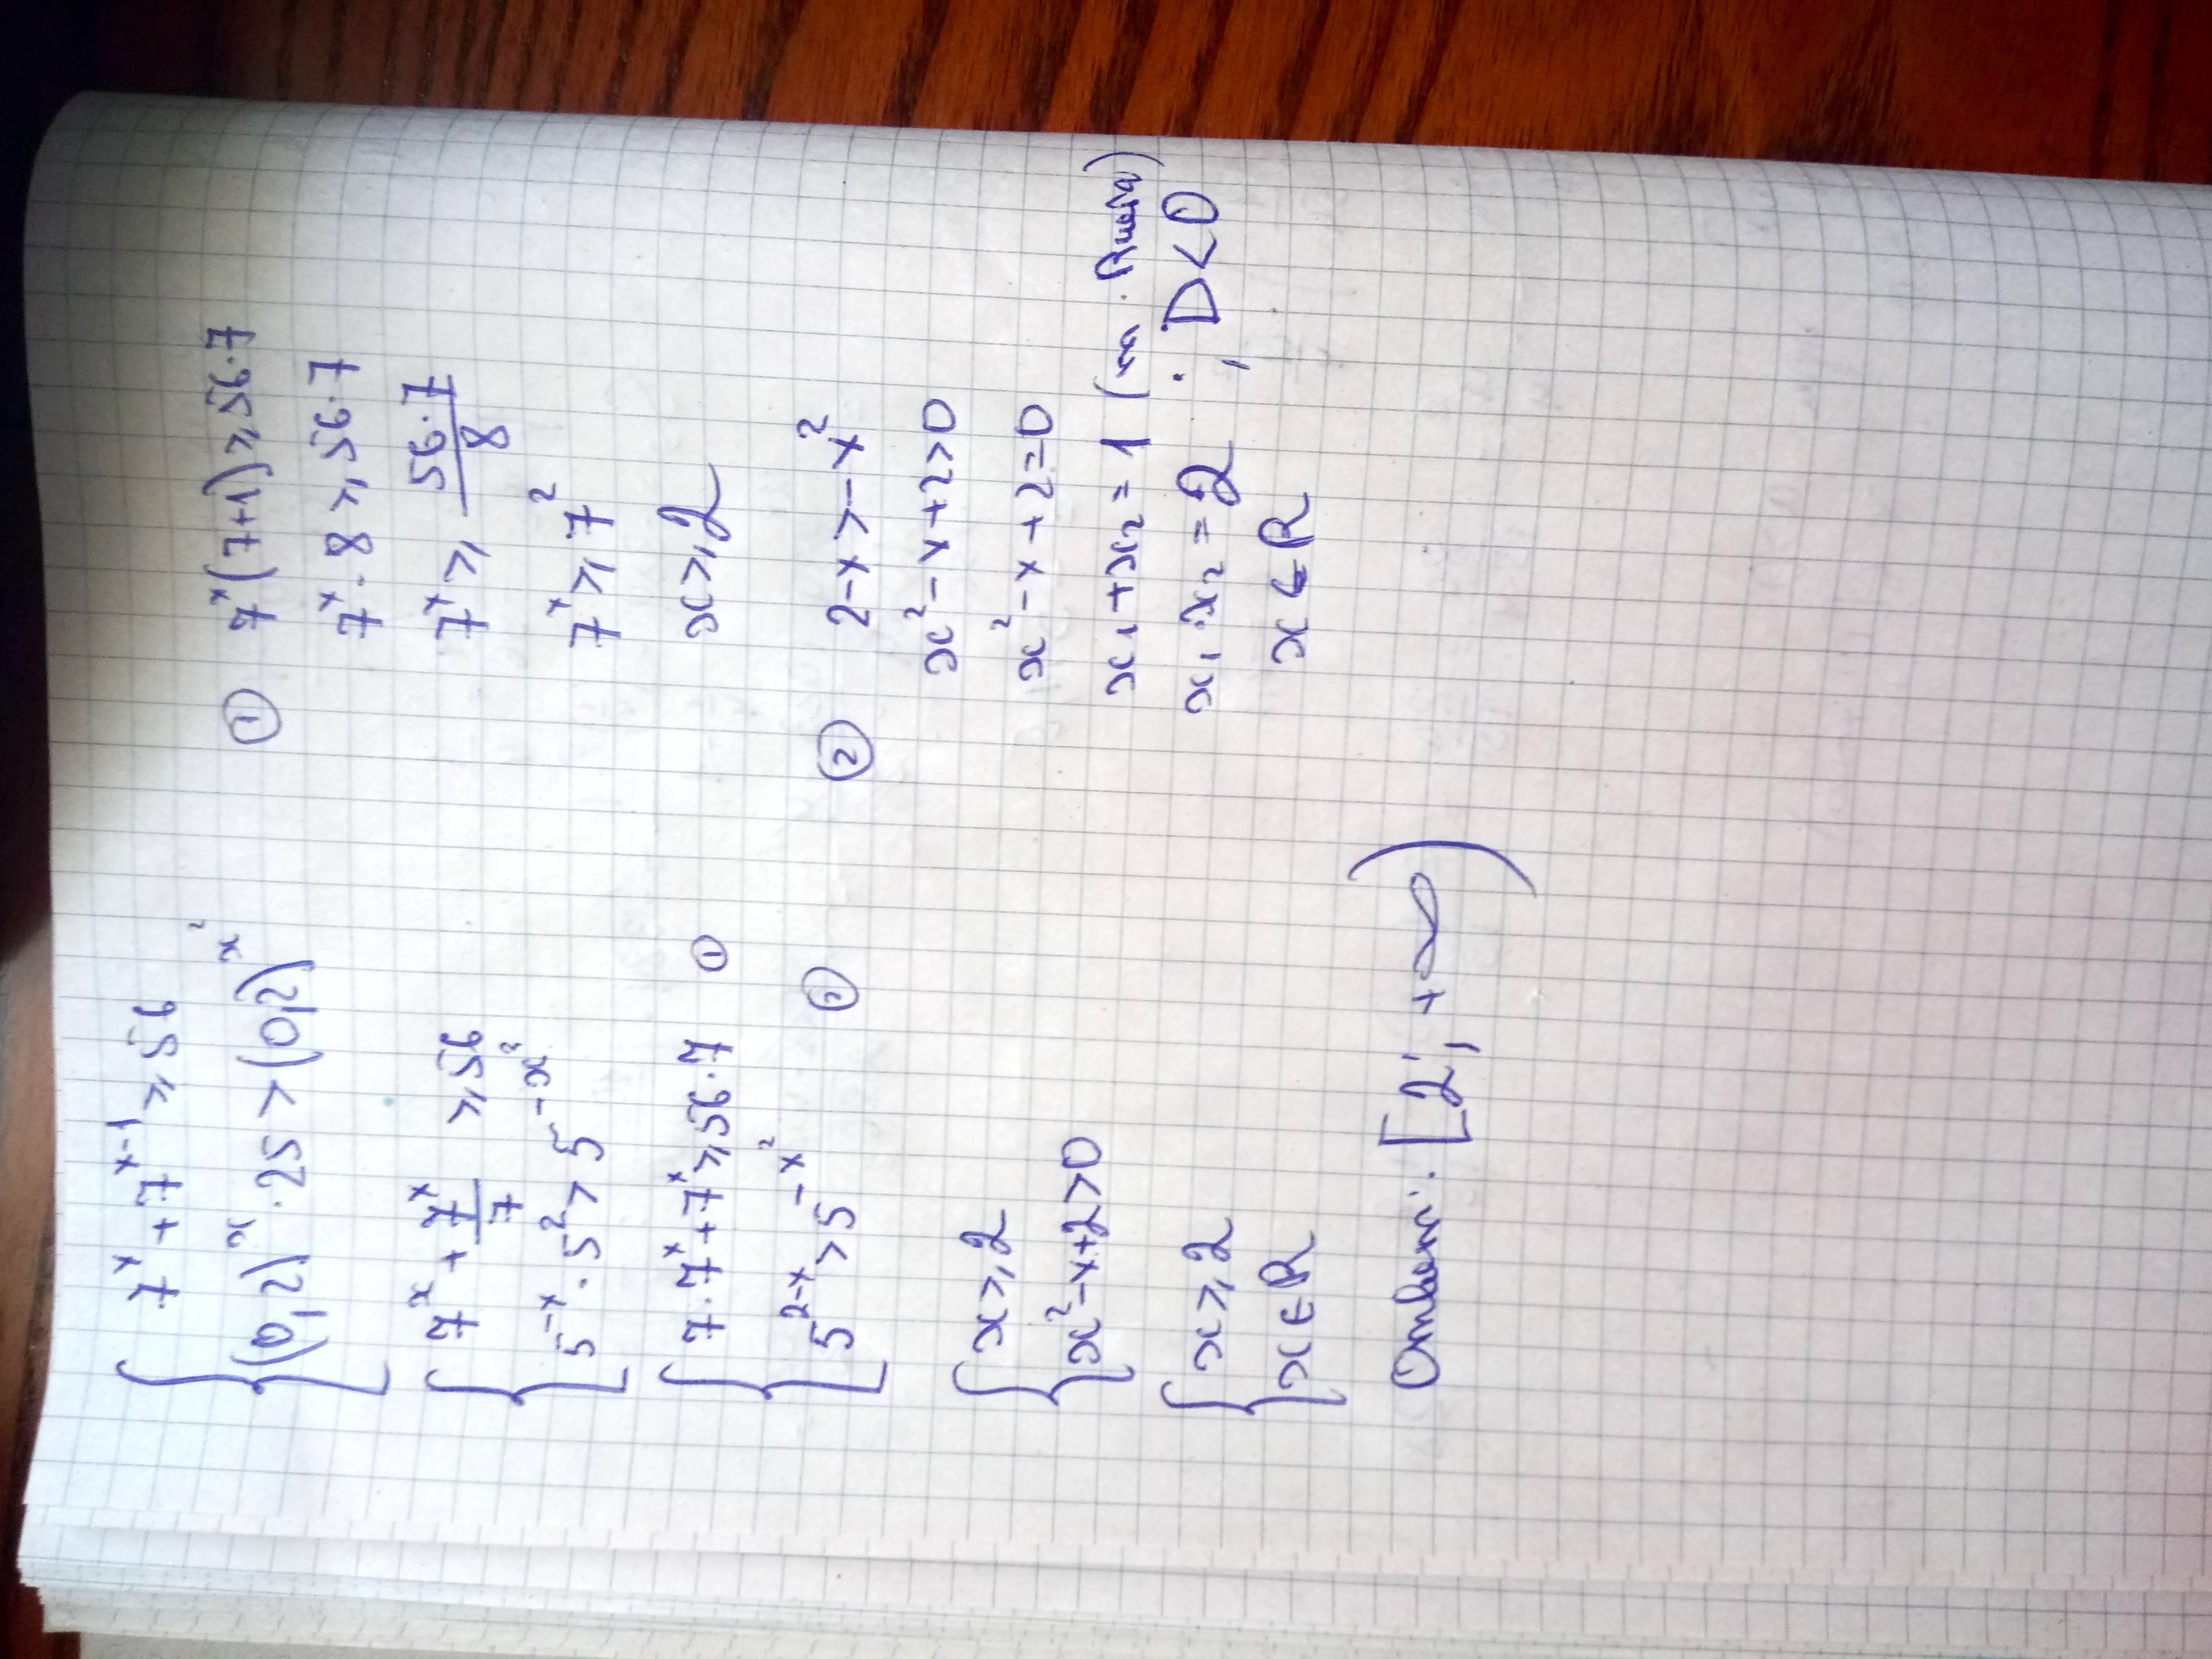 7^x + 7^{x-1} ⩾ 56
(0,2)^x · 25 > (0,2)^{x^2}
7^x + \frac{7^x}{7} ⩾ 56
5^{-x} · 5^2 > 5^{-x^2}
7 · 7^x + 7^x ⩾ 56 · 7 ①
5^{2-x} > 5^{-x^2} ②
x ⩾ 2
x^2 - x + 2 > 0
x ⩾ 2
x ∈ R
Ответ: [2; +∞)
① 7^x (7+1) ⩾ 56 · 7
7^x · 8 ⩾ 56 · 7
7^x ⩾ \frac{56 · 7}{8}
7^x ⩾ 7^2
x ⩾ 2
② 2 - x > -x^2
x^2 - x + 2 > 0
x^2 - x + 2 = 0
x_1 + x_2 = 1 (т. Виета)
x_1 · x_2 = 2 ; D < 0
x ∈ R